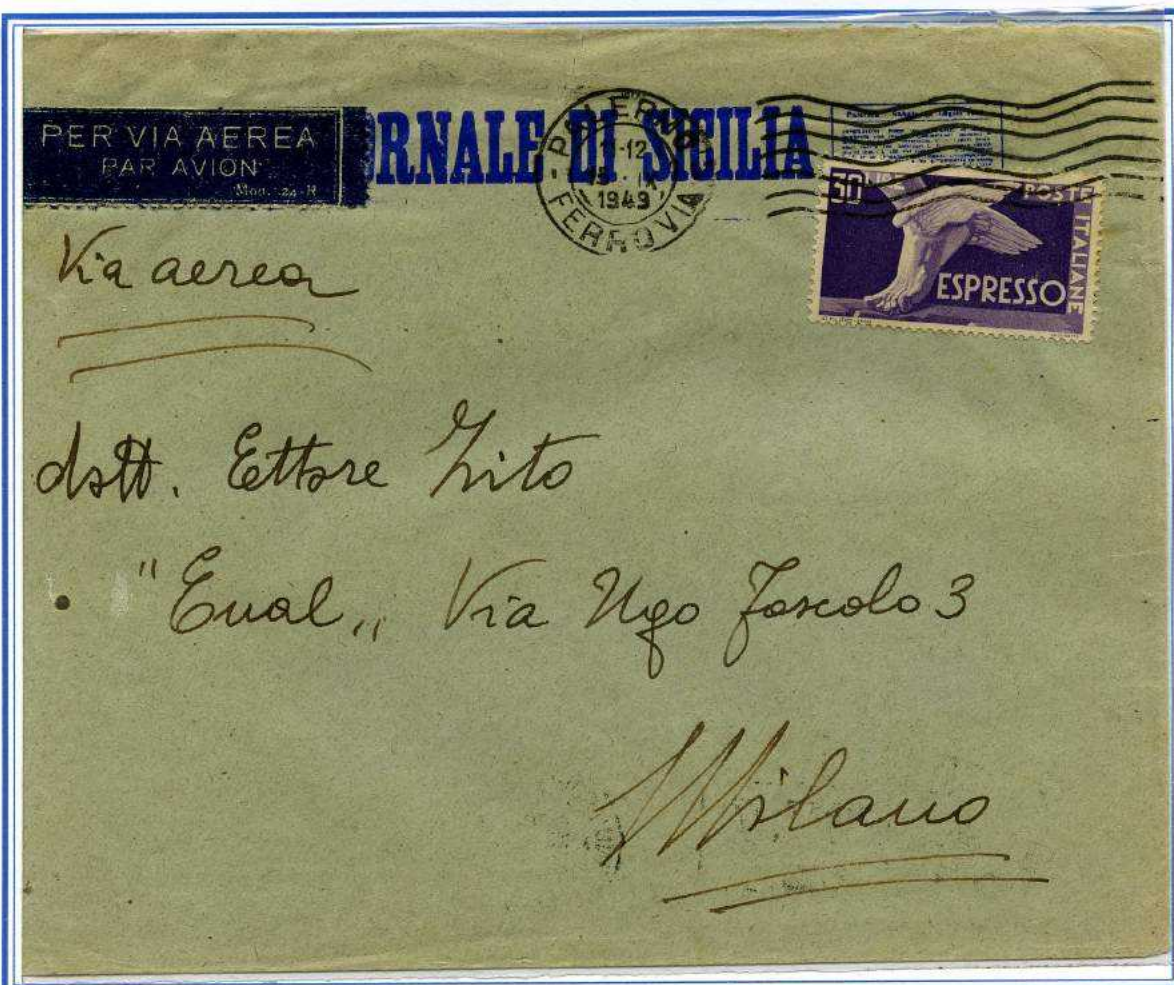 PER VIA AEREA
PAR AVION
Mod. 24-R
RNALE DI SICILIA
PALERMO
11-12
1949
FERROVIA
30 LIRE
POSTE ITALIANE
ESPRESSO
Via aerea
dott. Ettore Zito
"Eual„ Via Ugo Foscolo 3
Milano